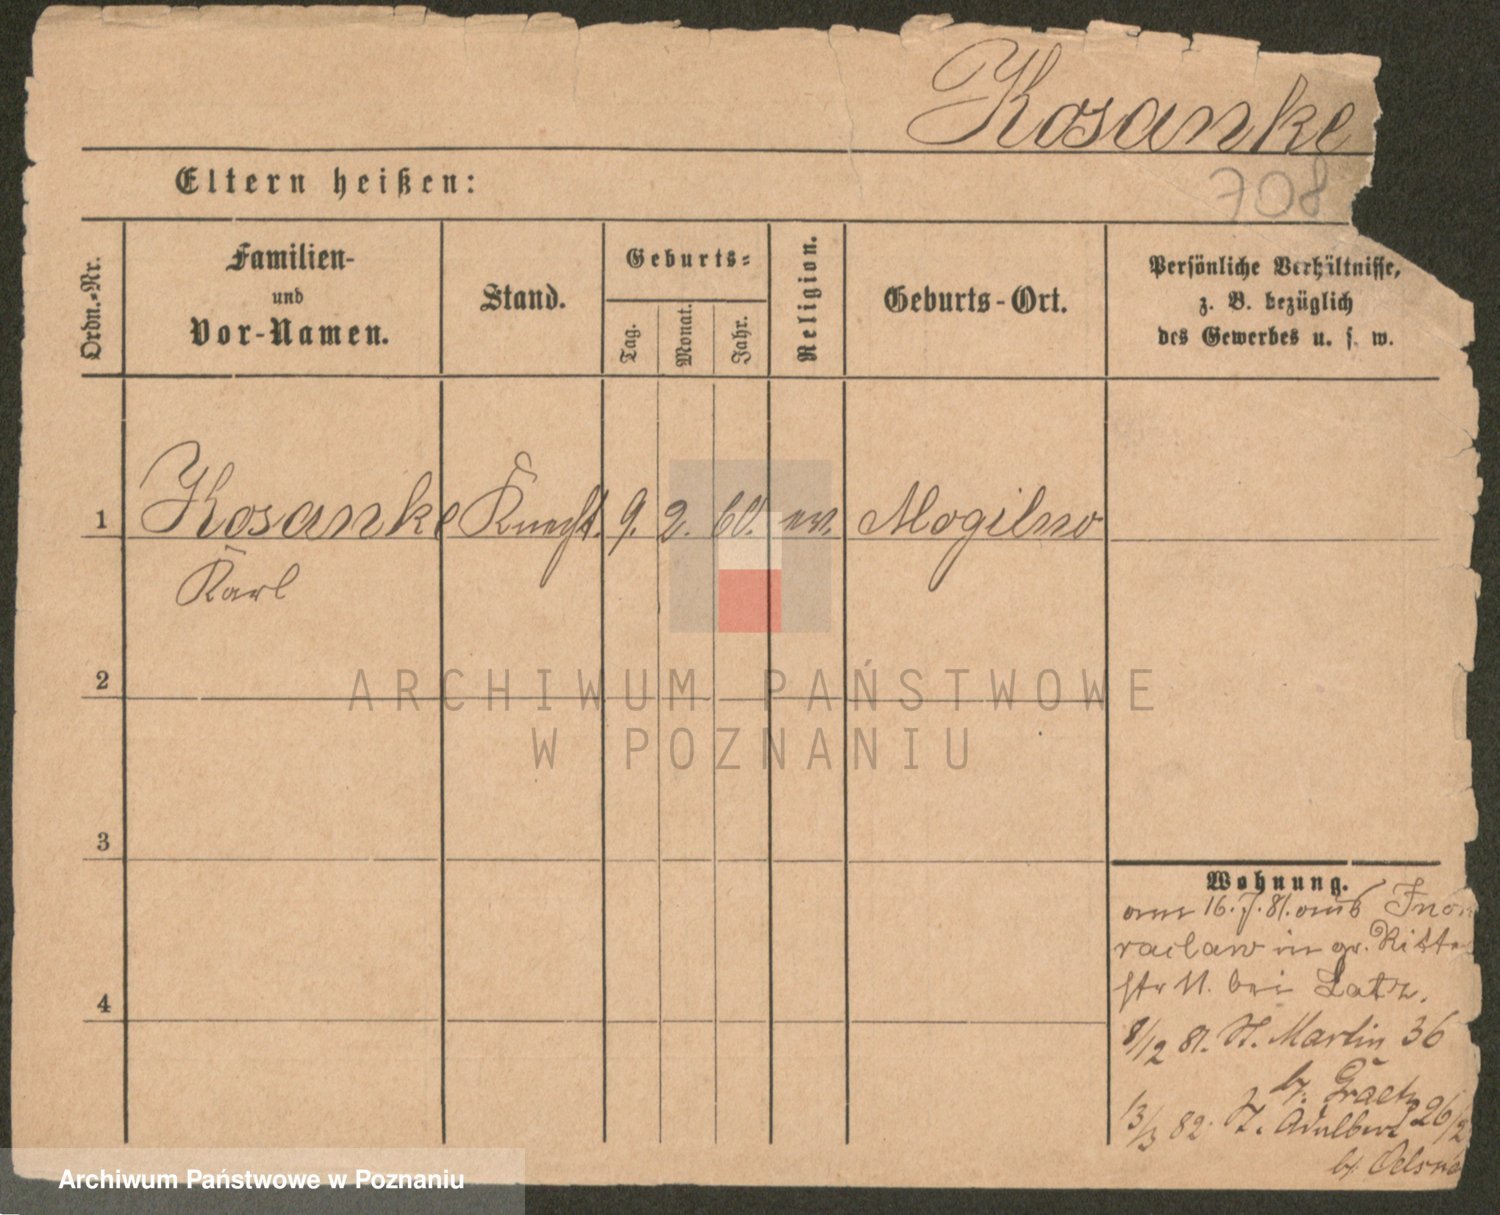 Kosanke
Eltern heißen:
708
Ordn.-Nr.
Familien-
und
Vor-Namen.
Stand.
Geburts-
Tag.
Monat.
Jahr.
Religion.
Geburts-Ort.
Persönliche Verhältnisse,
z. B. bezüglich
des Gewerbes u. s. w.
1 Kosanke Knecht. 9. 2. 60. ev. Mogilno
Karl
2
ARCHIWUM PAŃSTWOWE
W POZNANIU
3
Wohnung.
am 16.7.81. aus Ino
raclaw in gr. Ritter
str 11. bei Latz.
8/12 81. St. Martin 36
b/. Graetz
13/3 82. St. Adalbert 26/2
b/.
4
Archiwum Państwowe w Poznaniu